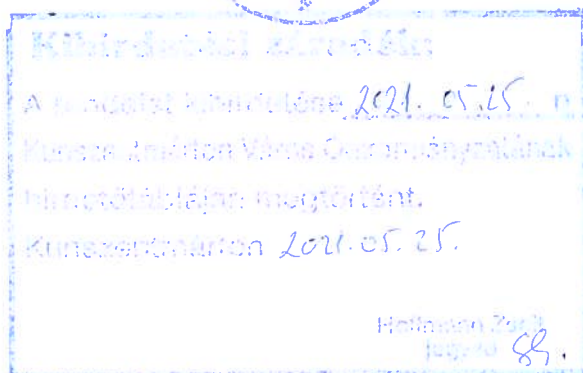 Kihirdetési záradék:
A rendelet kihirdetése 2021. 05. 25. n
Kunszentmárton Város Önkormányzatának
hirdetőtábláján megtörtént.
Kunszentmárton 2021. 05. 25.
Hoffmann Zsolt
jegyző